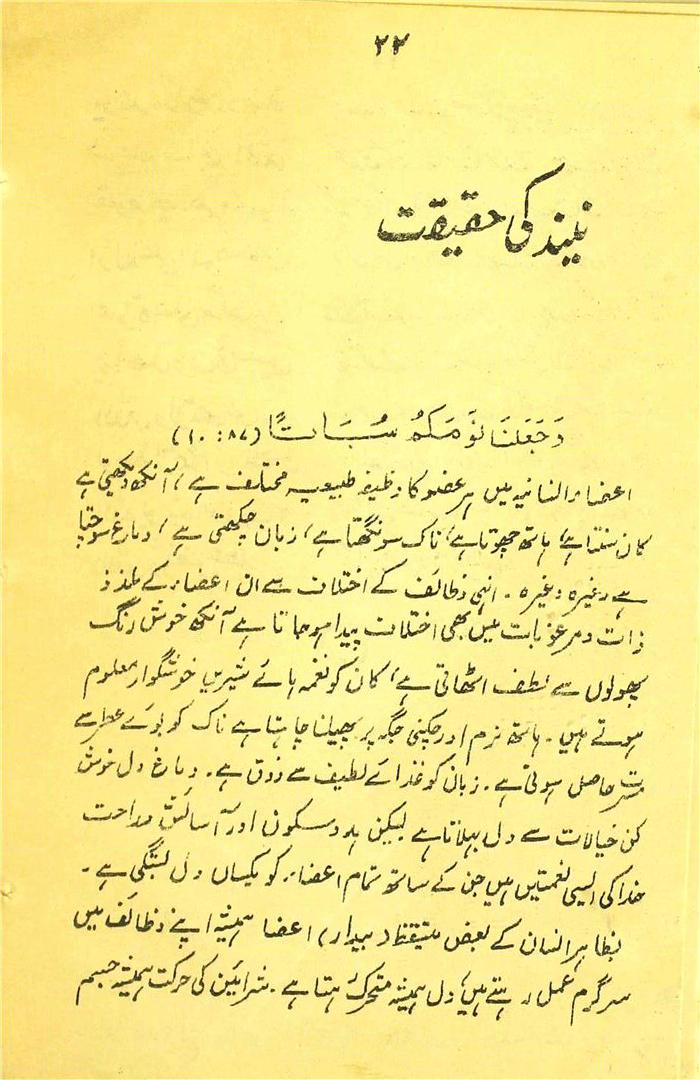 ۲۲
نیند کی حقیقت
وَجَعَلنَا نَومَکُم سُبَاتًا (۱۰:۸۷)
اعضاء انسانیہ میں ہر عضو کا وظیفہ طبیعیہ مختلف ہے، آنکھ دیکھتی ہے
کان سنتا ہے، ہاتھ چھوتا ہے، ناک سونگھتا ہے، زبان چکھتی ہے، دماغ سوچتا
ہے وغیرہ وغیرہ ۔ انہی وظائف کے اختلاف سے ان اعضاء کے ملذذ
ذات و مرغوبات میں بھی اختلاف پیدا ہو جاتا ہے آنکھ خوش رنگ
پھولوں سے لطف اٹھاتی ہے، کان کو نغمہ ہائے شیریں خوشگوار معلوم
ہوتے ہیں ۔ ہاتھ نرم اور چکنی جگہ پر پھیلنا چاہتا ہے ناک کو بوئے عطر سے
مسرت حاصل ہوتی ہے ۔ زبان کو غذائے لطیف سے ذوق ہے ۔ دماغ دل خوش
کن خیالات سے دل بہلاتا ہے لیکن ہدو سکون اور آسائش و راحت
خدا کی ایسی نعمتیں ہیں جن کے ساتھ تمام اعضاء کو یکساں دل بستگی ہے ۔
بظاہر انسان کے بعض متیقظ (بیدار) اعضا ہمیشہ اپنے وظائف میں
سرگرم عمل رہتے ہیں، دل ہمیشہ متحرک رہتا ہے ۔ شرائین کی حرکت ہمیشہ جسم